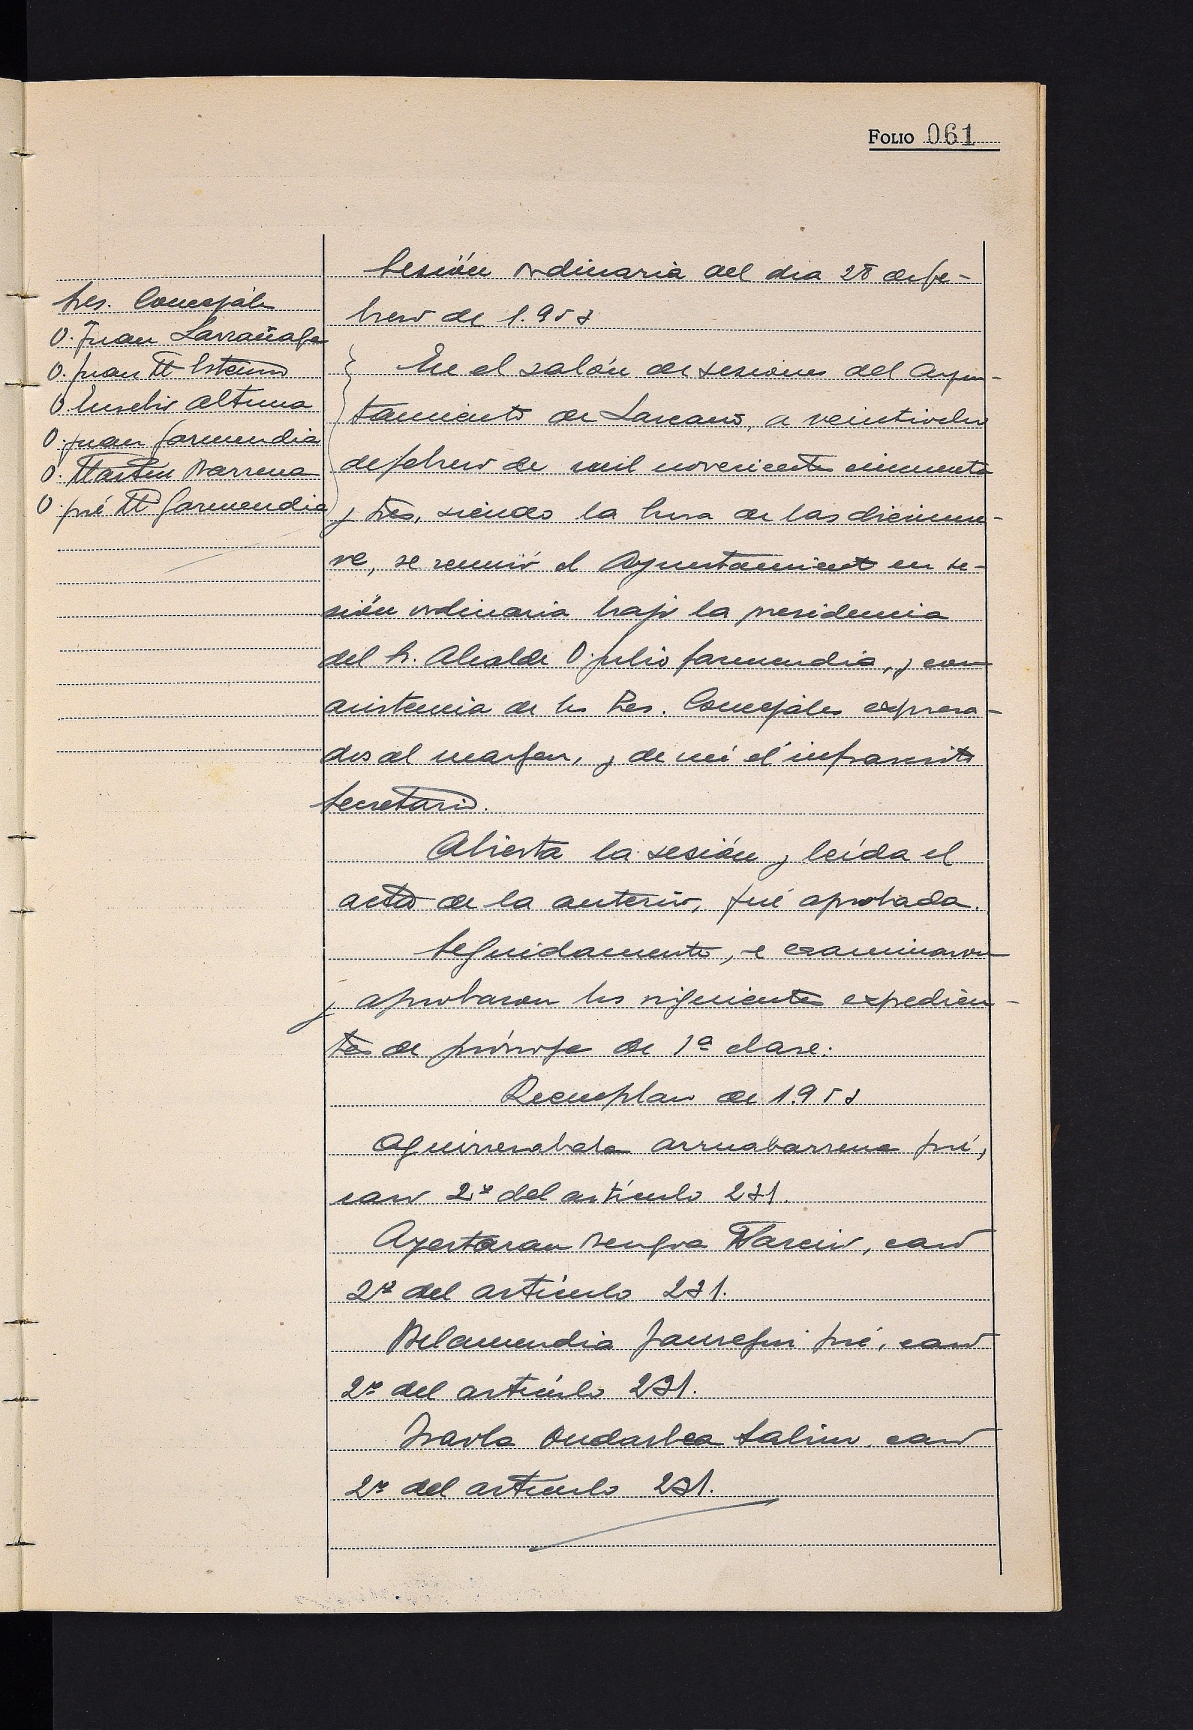 FOLIO 061
Sesión ordinaria del dia 28 de fe-
brero de 1.953
Sres. Concejales
D. Juan Larrañaga
D. Juan Mª
D. Eusebio Altuna
D. Juan Garmendia
D. Martin Barrena
D. José Mª Garmendia
En el salón de sesiones del Ayun-
tamiento de Lazcano, a veintiocho
de febrero de mil novecientos cincuenta
y tres, siendo la hora de las diecinue-
ve, se reunió el Ayuntamiento en se-
sión ordinaria bajo la presidencia
del Sr. Alcalde D. Julio Garmendia, y con
asistencia de los Sres. Concejales expresa-
dos al margen, y de mí el infrascrito
Secretario.
Abierta la sesión y leída el
acta de la anterior, fué aprobada.
Seguidamente, se examinaron
y aprobaron los siguientes expedien-
tes de prórroga de 1ª clase.
Reemplazo de 1.953
Aguirrezabala Arruabarrena José,
caso 2º del artículo 231.
Ayestaran Bengoa Narciso, caso
2º del artículo 231.
Belamendia Jauregui José, caso
2º del artículo 231.
Iraola caso
2º del artículo 231.